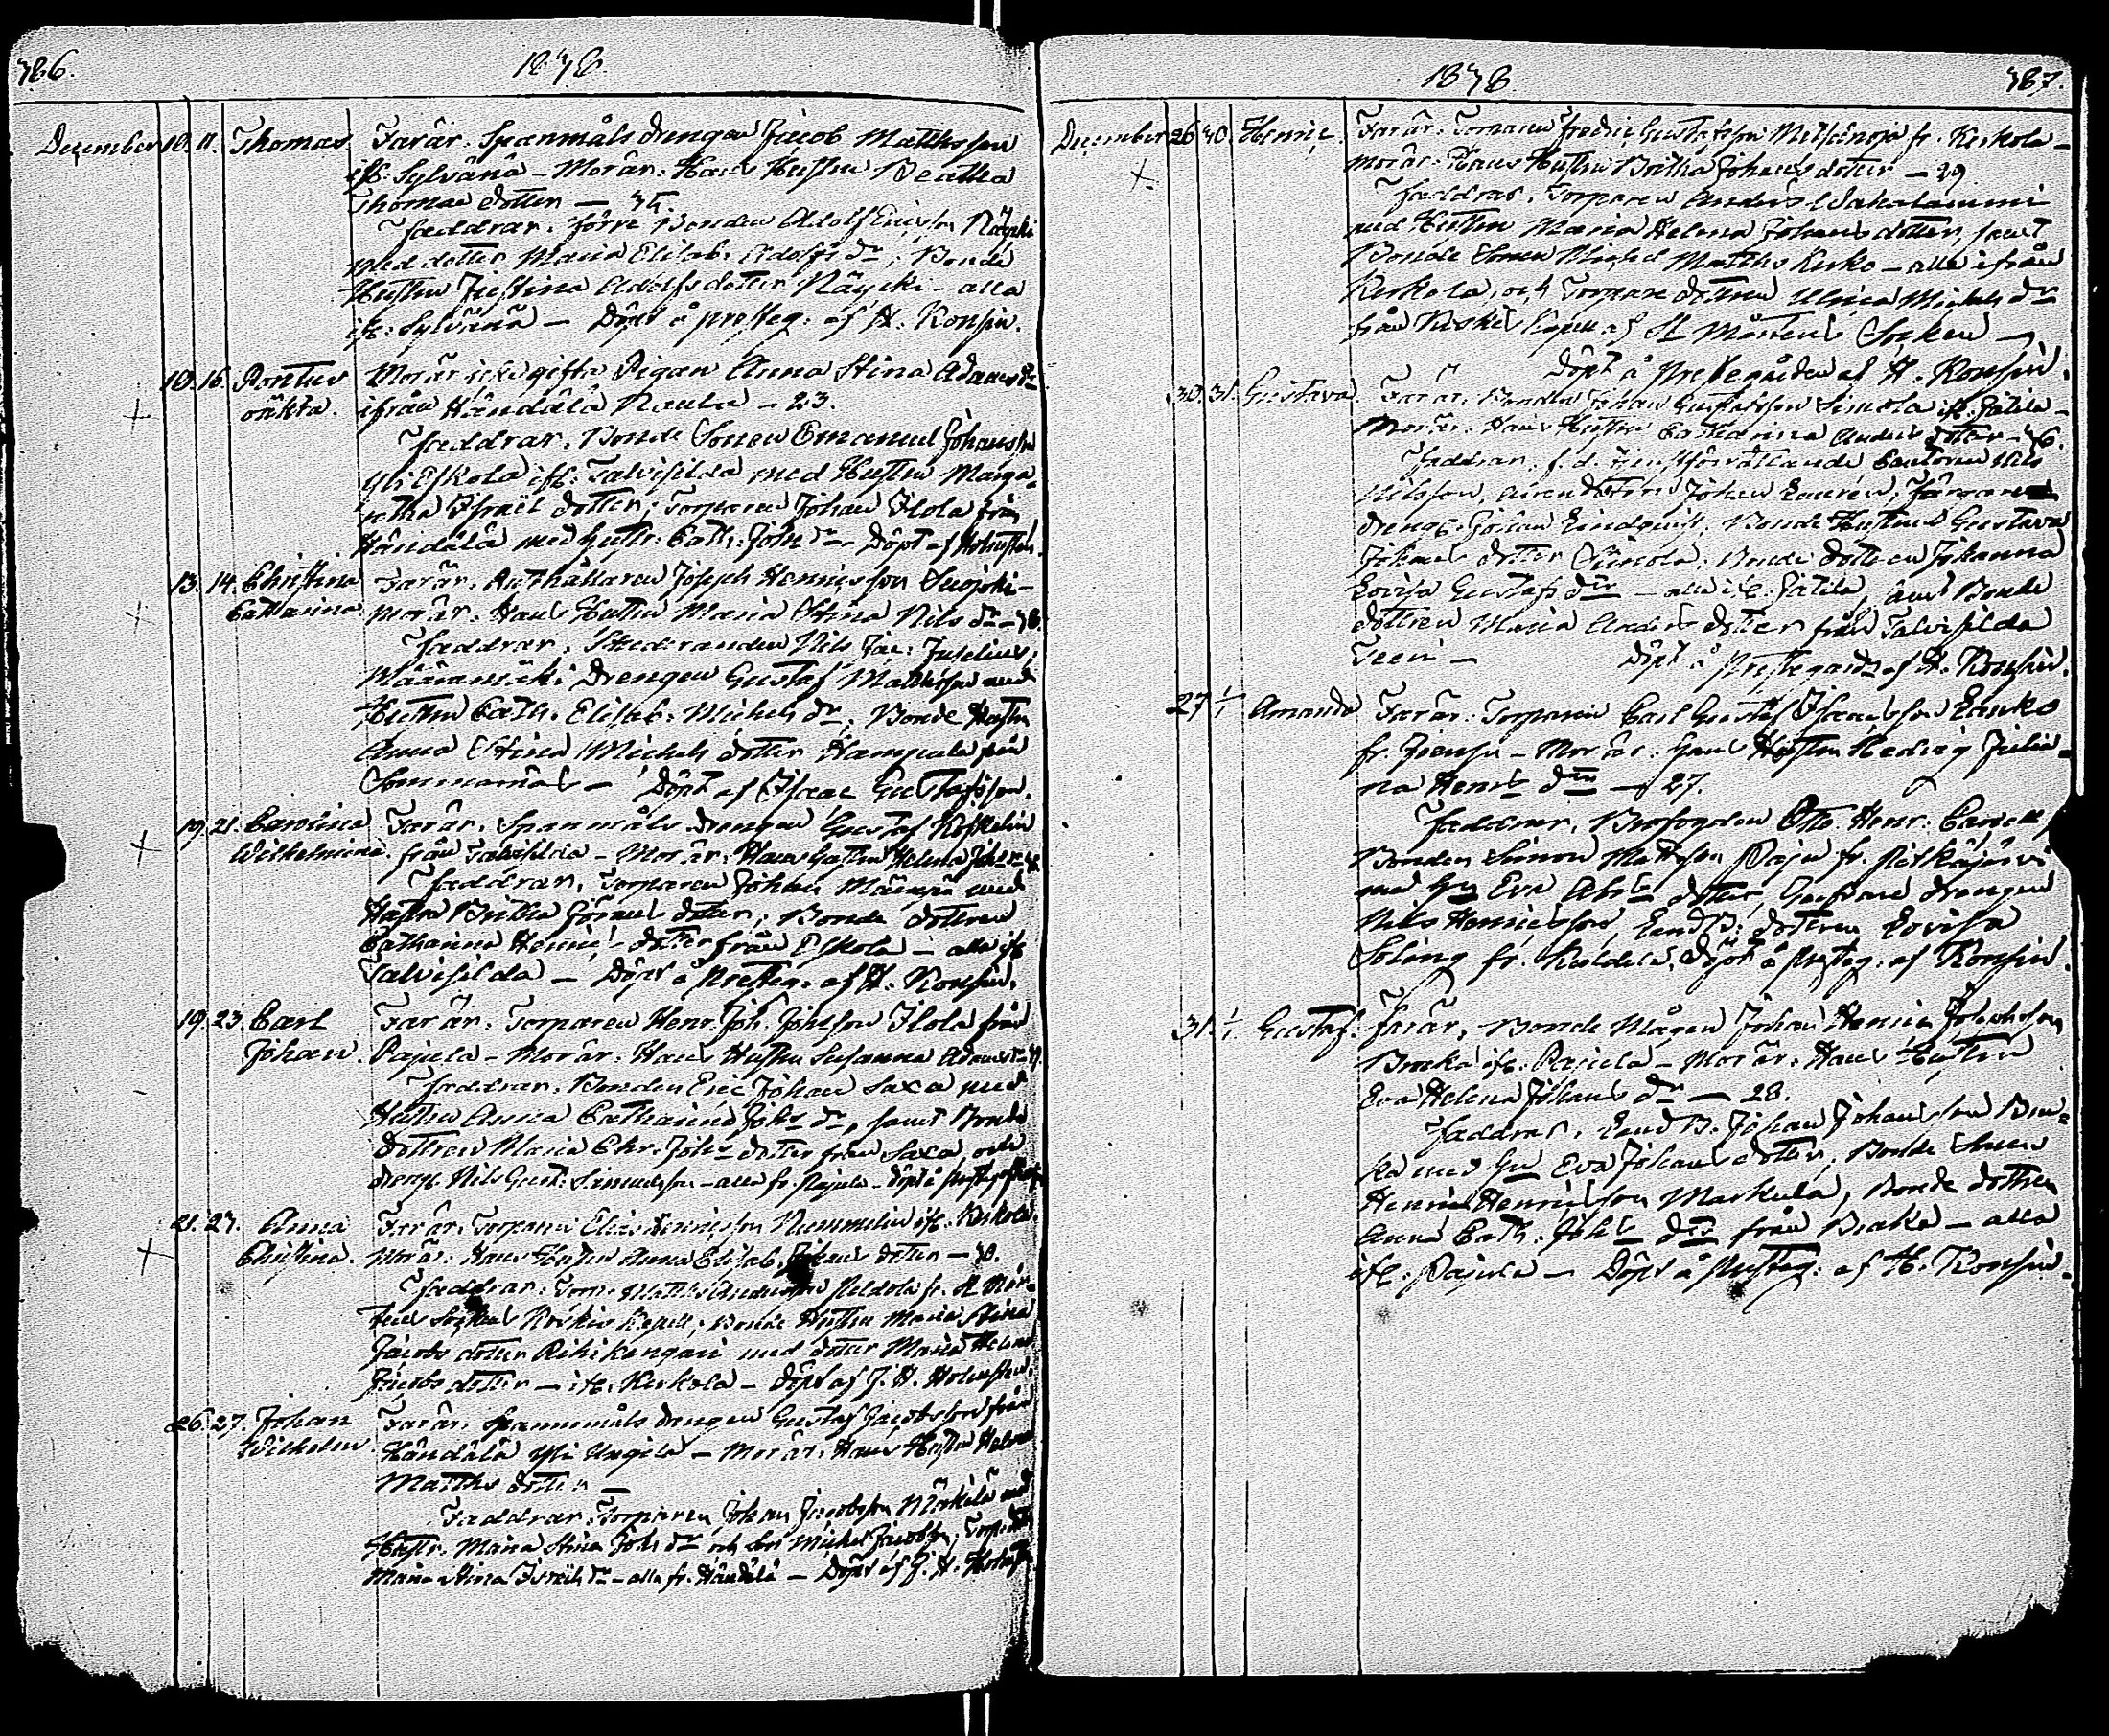 386.
1838.
December 10. 11. Thomas Far är. Spanmåls drengen Jacob Mattsson
ifr. Sylvänä – Mor är. Hans Hustru Beatha
Thomae dotter – 35.
Faddrar. förre Bonden Adolf Ericsson Näycki
med dotter Maria Elisab. Adolfs dr; Bonde
Hustru Justina Adolfs dotter Näycki – alla
ifr. Sylvänä – Döpt å presteg. af H. Konsin.
10. 16. Pontus Mor är icke gifta Pigan Anna Stina Adams dr
oäkta. ifrån Händälä Raula – 23.
Faddrar. Bonde Sonen Emanuel Johansson
Yli Eskola ifr. Talvisilda med Hustru Marga-
retha Israël dotter; Torparen Johan Ilola från
Händälä med Hustr. Cath. Joh. dr – Döpt af Holmsten.
13. 14. Christina Far är. Johan Joseph Henricsson Suojoki –
Catharina Mor är. Hans Hustru Maria Stina Nils dr – 38.
Faddrar. Studeranden Nils Jac. Juselius;
Drengen Gustaf Mattsson med
Hustru Cath. Elisab. Michels dr; Bonde Hustru
Anna Stina Michels dotter Hampula från
Sommarnäs – Döpt af Isaac Gustafsson.
19. 21. Carolina Far är. Spanmåls drengen Gustaf
Wilhelmina. från Talvisilda – Mor är. Hans Hustru Helena
Faddrar. Torparen Johan Mäenpä med
Hustru Britha Görans dotter; Bonde dottren
Catharina Henric. dotter från Eskola – alla ifr
Talvisilda – Döpt å presteg. af H. Konsin.
19. 23. Carl Far är. Torparen Henr. Joh. Johsson Ilola från
Johan. Pajula – Mor är. Hans Hustru Susanna Adams dr
Faddrar. Bonden Eric Johan Saxa med
Hustru Anna Catharina Johs dr, samt Bonde
dottren Maria Chr. Johs dotter från Saxa, och
dreng. Nils Gust. Simuelsson – alla fr. Pajula – Döpt å presteg.
21. 27. Anna Far är. Torparen Elias Henricsson Nummelin ifr. Kerkola.
Christina. Mor är. Hans Hustru Anna Elisab. Johans dotter – 30.
Faddrar. Torp. Matths Andersson Peldola fr. St Mår-
tens Sockens Koskis Kapell; Bonde Hustru Maria Stina
Jacobs dotter Rihikangari med dotter Maria Helena
Jacobs dotter – ifr. Kerkola – Döpt af J. H. Holmsten.
26. 27. Johan Far är. Spannmåls drengen Gustaf Jacobsson från
Wilhelm. Händälä Yli Ungila – Mor är. Hans Hustru Helena
Matths dotter –
Faddrar. Torparen Johan Jacobsson Märkilä med
Hustr. Maria Stina Johs dr och Son Michel Jacobsson, Torp.
Maria Stina Israels dr – alla fr. Händälä – Döpt af J. H. Holmsten
1838.
387.
December 26 30. Henric. Far är. Torparen Fredric Gustafsson Metsänoja fr. Kerkola –
Mor är. Hans Hustru Britha Johans dotter – 29.
Faddrar. Torparen Anders Wakalammi
med Hustru Maria Helena Johans dotter, samt
Bonde Sonen Michel Matths Kerko – alla ifrån
Kerkola, och Torpare dottren Ulrica Michels dr
från Koskis Kapell af St Mårtens Socken –
Döpt å prestegården af H. Konsin.
30. 31. Gustava. Far är. Bonden Johan Gustafsson Simola ifr. Jätila –
Mor är. Hans Hustru Catharina Anders dotter – 36.
Faddrar. f. d. Cantoren Nils
Nilsson, Johan Lauren, Färgare
dreng. Johan Lindqvist; Bonde Hustrun Gustava
Johans dotter Simola; Bonde dottren Johanna
Lovisa Gustafs dr – alla ifr. Jätila, samt Bonde
dottren Maria Anders dotter från Talvisilda
– Döpt å prestegårdn af H. Konsin.
27 1/1 Amanda Far är. Torparen Carl Gustaf Isaacsson Lanko
fr. – Mor är. Hans Hustru Hedvig Julia-
na Henrs dr – 27.
Faddrar. Brofogden Otto Henr. Carell
Bonden Simon Mattsson Paju fr. Pitkäjärvi
med Hu Eva Abrs dotter, drengen
Nils Henricsson, dottren Lovisa
Soling fr. Kuldela. Döpt å presteg. af Konsin.
31. 1/1. Gustaf. Far är. Bonde Mågen Johan Henric Johansson
Brocka ifr. Pajula – Mor är. Hans Hustru
Eva Helena Johans dr – 28.
Faddrar. Johan Johansson Bro-
ka med Hu Eva Johans dotter; Bonde Sonen
Henric Henricsson Markula, Bonde dottren
Anna Cath. Johs dr från Broka – alla
ifr. Pajula – Döpt å presteg. af H. Konsin.